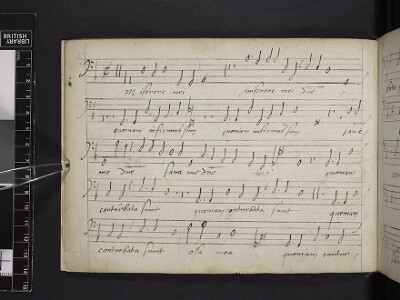 BRITISH LIBRARY
Miserere mei miserere mei dñe
quoniam infirmus sum quoniam infirmus sum sana
me dñe sana me dñe quoniam
conturbata sunt quoniam conturbata sunt quoniam
conturbata sunt osa mea quoniam